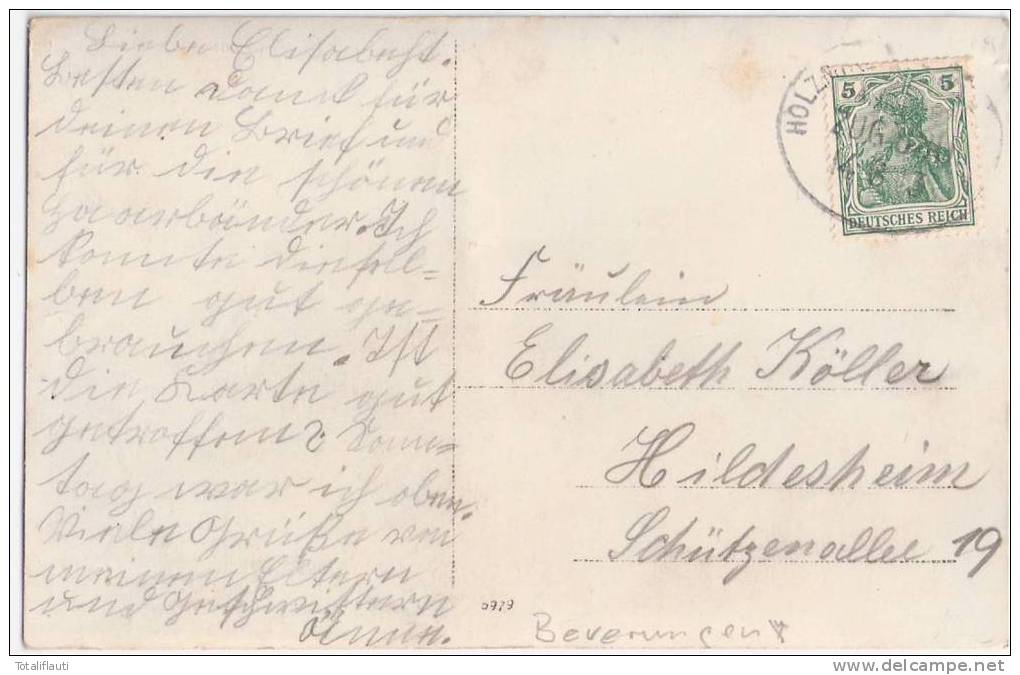 Liebe Elisabeht.
Besten Dank für
deinen Brief und
für die schönen
Haarbänder. Ich
konnte diesel=
ben gut ge=
brauchen. Ist
die Karte gut
getroffen? Sonn=
tag war ich oben.
Viele Grüße von
meinen Eltern
und Geschwistern
Änne.
HOLZM
ZUG
5 5
DEUTSCHES REICH
Fräulein
Elisabeth Köller
Hildesheim
Schützenallee 19
5979
Beverungen
Totaliflauti
http://www.delcampe.net